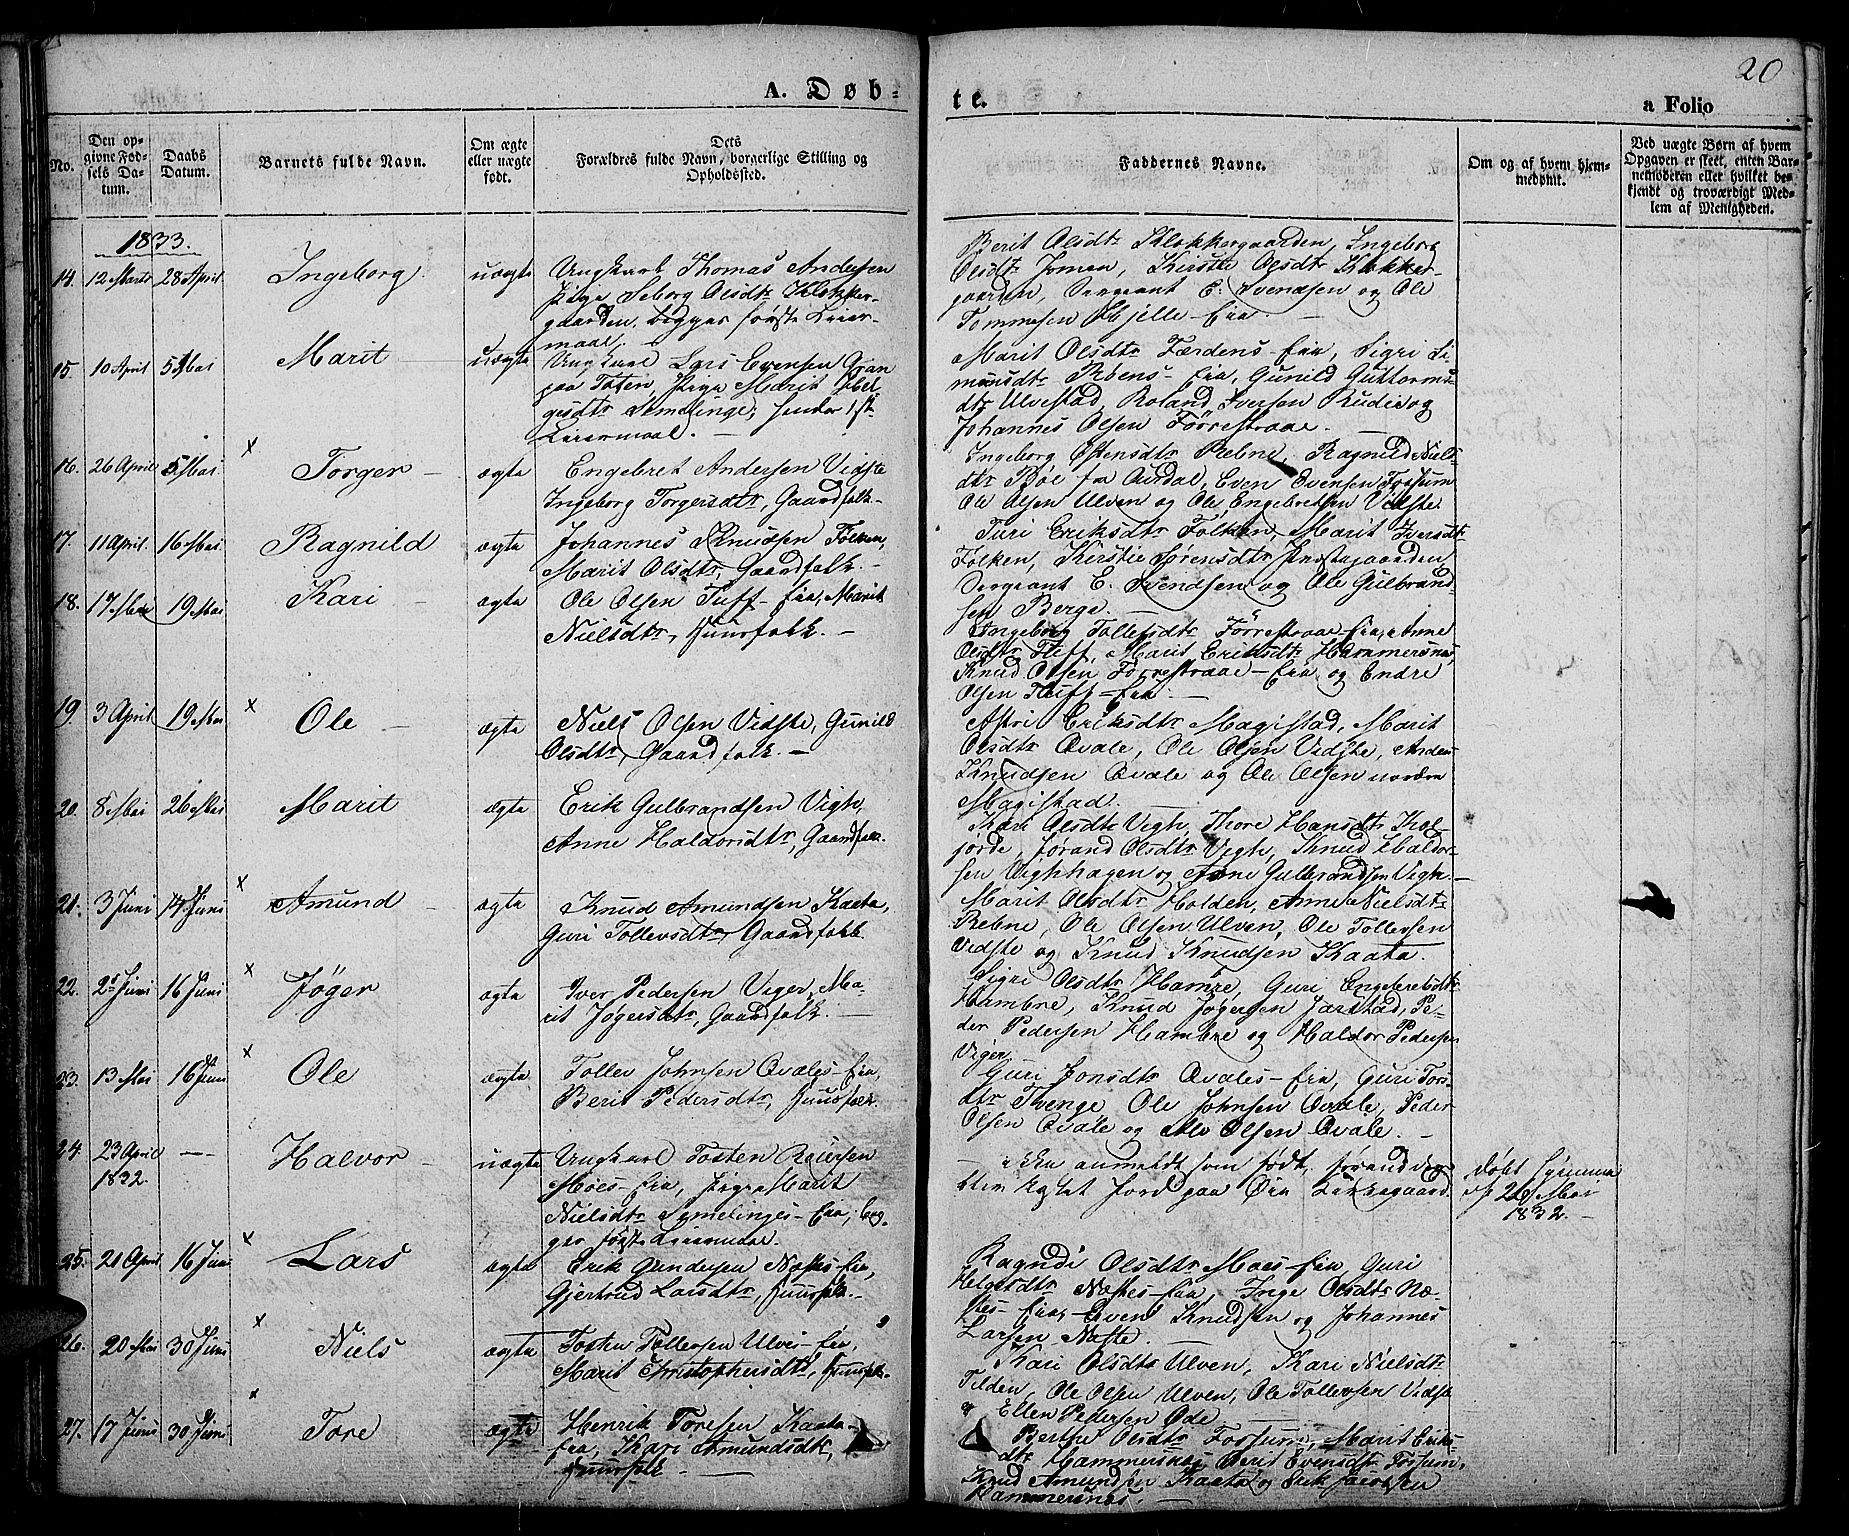 20
A. Døb-
te.
a Folio
No.
Den op-
givne Fød-
sels Da-
tum.
Daabs
Datum.
Barnets fulde Navn.
Om ægte
eller uægte
født.
Dets
Forældres fulde Navn, borgerlige Stilling og
Opholdssted.
Faddernes Navne.
Om og af hvem hjem-
medøbt.
Ved uægte Børn af hvem
Opgaven er skeet, enten Bar-
nemoderen eller hvilket be-
kjendt og troværdigt Med-
lem af Menigheden.
1833.
14. 12 Marts 28 April Ingeborg. uægte
Ungkarl Thomas Andersen
Pige Seborg Olsdtr Klokker-
gaarden, begges første Leier-
maal.
Berit Olsdtr Klokkergaarden, Ingeborg
Olsdtr Jomen, Kirstie Olsdtr Klokker-
gaarden, Sergeant E. Svendsen og Ole
Tommesen Hjelle-eia.
15 10 April 5 Mai Marit uægte
Ungkarl Lars Evensen Gran
paa Toten, Pige Marit Hel-
gesdtr Semelinge, hendes 1ste
Leiermaal.
Marit Olsdtr Færdens-eia, Sigri Si-
munsdtr Rebens-eia, Gunild Guttorms-
dtr Ulvestad, Roland Iversen Rudi og
Johannes Olsen Förrestraae.
16. 26 April 5 Mai x Torger ægte
Engebret Andersen Vidste
Ingeborg Torgersdtr, Gaardfolk.
Ingeborg Østensdtr Rebne, Ragnild Niels-
dtr Bøe fra Aurdal, Even Evensen Fossum
Ole Olsen Ulven og Ole Engebretsen Vidste.
17. 11 April. 16 Mai Ragnild ægte
Johannes Knudsen Folken,
Marit Olsdtr, Gaardfolk.
Turi Eriksdtr Folken, Marit Iversdtr
Folken, Kirstie Sørensdtr Præstegaarden
Sergeant E. Svendsen og Ole Gulbrand-
sen Berge.
18. 17 Mai 19 Mai Kari ægte
Ole Olsen Tuff-eia, Marit
Nielsdtr, Huusfolk.
Ingeborg Tollefsdtr Förrestraae-eia, Anne
Olsdtr Tuff, Marit Eriksdtr Hammersnæs,
Knud Olsen Förrestraae-eia og Endre
Olsen Tuff-eia.
19. 3 April 19 Mai x Ole ægte
Niels Olsen Vidste, Gunild
Olsdtr, Gaardfolk.
Astri Eriksdtr Magistad, Marit
Olsdtr Qvale, Ole Olsen Vidste, Anders
Knudsen Qvale og Ole Olsen nordre
Magistad.
20. 8 Mai 26 Mai Marit ægte
Erik Gulbrandsen Vigh,
Anne Haldorsdtr, Gaardfolk.
Kari Olsdtr Vigh, Thore Hansdtr Kol-
jorde, Jørand Olsdtr Vigh, Knud Haldor-
sen Vighhagen og Arne Gulbrandsen Vigh.
21. 3 Juni 14 Juni x Amund ægte
Knud Amundsen Kaata,
Guri Tollevsdtr, Gaardfolk.
Marit Olsdtr Holden, Anne Nielsdtr
Rebne, Ole Olsen Ulven, Ole Tollevsen
Vidste og Knud Knudsen Kaata.
22. 2 Juni 16 Juni x Jøger ægte
Iver Pedersen Viger, Ma-
rit Jøgersdtr, Gaardfolk.
Sigri Olsdtr Hamre, Guri Engebretsdtr
Hambre, Knud Jøgersen Jarstad, Pe-
der Pedersen Hambre og Haldor Pedersen
Viger.
23. 13 Mai 16 Juni x Ole ægte
Tollev Johnsen Qvales-eia,
Berit Pedersdtr, Huusfolk.
Guri Jonsdtr Qvales-eia, Guri Tors-
dtr Tvenge, Ole Johnsen Qvale, Peder
Olsen Qvale og Ole Olsen Qvale.
24. 23 April — Halvor uægte
1832.
Ungkarl Tosten Reiersen
Moes-eia, Pige Marit
Nielsdtr Semelinges-eia, beg-
ges første Leiermaal.
ikke anmeldt som født, førend der
blev kastet Jord paa Øia Kirkegaard.
døbt hjemme
26 Mai
1832.
25. 21 April 16 Juni x Lars ægte
Erik Gundersen Næstes-eia,
Gjertrud Larsdtr, Huusfolk.
Ragndi Olsdtr Moes-eia, Guri
Helgesdtr Næstes-eia, Inge Olsdtr Næ-
stes-eia, Even Knudsen og Johannes
Larsen Næste.
26. 20 Mai 30 Juni x Niels ægte
Tosten Tollevsen Ulve-eia,
Marit Christophersdtr, Huusfolk.
Kari Olsdtr Ulven, Kari Nielsdtr
Tilden, Ole Olsen Ulven, Ole Tollevsen Vidste
og Ellen Pedersen Øde
27. 17 Juni 30 Juni x Tore ægte
Henrik Toresen Kaata-
eia, Kari Amundsdtr,
Huusfolk
Berthe Olsdtr Fossum, Marit Eriks-
dtr Hammersnæs, Berit Evensdtr Fossum,
Knud Amundsen Kaata og Erik Jacobsen
Hammersnæs.